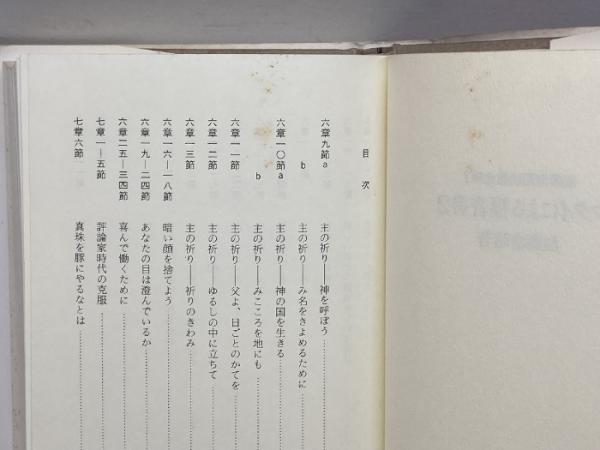 目次
六章九節a 主の祈り――神を呼ぼう
b 主の祈り――み名をきよめるために
六章一〇節a 主の祈り――神の国を生きる
b 主の祈り――みこころを地にも
六章一一節 主の祈り――父よ、日ごとのかてを
六章一二節 主の祈り――ゆるしの中に立ちて
六章一三節 主の祈り――祈りのきわみ
六章一六―一八節 暗い顔を捨てよう
六章一九―二四節 あなたの目は澄んでいるか
六章二五―三四節 喜んで働くために
七章一―五節 評論家時代の克服
七章六節 真珠を豚にやるなとは